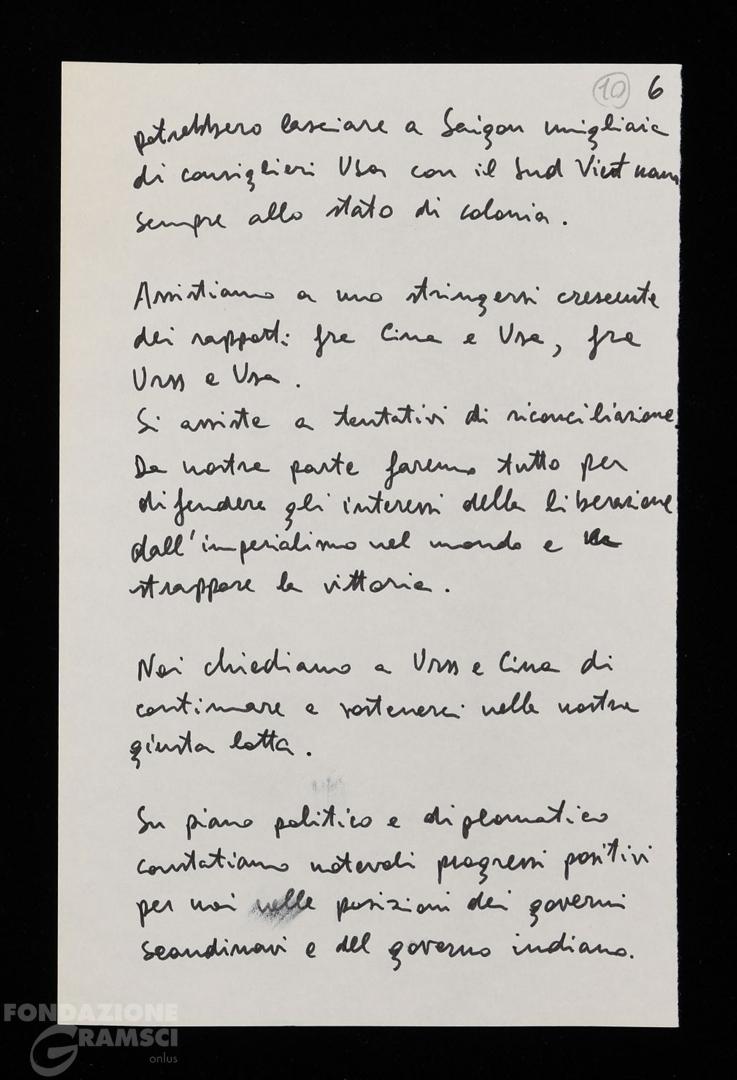 10 6
potrebbero lasciare a Saigon migliaia
di consiglieri Usa con il Sud Vietnam
sempre allo stato di colonia.
Assistiamo a uno stringersi crescente
dei rapporti fra Cina e Usa, fra
Urss e Usa.
Si assiste a tentativi di riconciliazione.
Da nostra parte faremo tutto per
difendere gli interessi della liberazione
dall'imperialismo nel mondo e
strappare la vittoria.
Noi chiediamo a Urss e Cina di
continuare a sostenerci nella nostra
giusta lotta.
Su piano politico e diplomatico
constatiamo notevoli progressi positivi
per noi nelle posizioni dei governi
scandinavi e del governo indiano.
FONDAZIONE
GRAMSCI
onlus